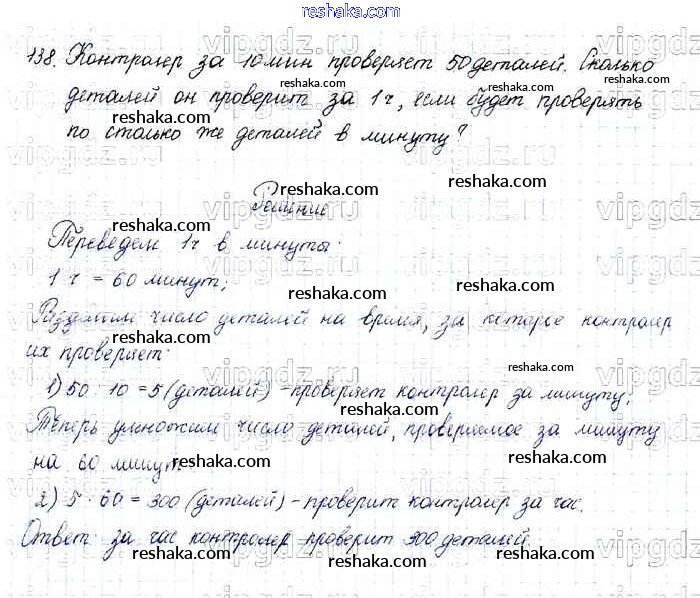 reshaka.com
138. Контролер за 10 мин проверяет 50 деталей. Сколько
деталей он проверит за 1 ч, если будет проверять
по столько же деталей в минуту?
Решение
Переведем 1 ч в минуты:
1 ч = 60 минут;
Разделим число деталей на время, за которое контролер
их проверяет:
1) 50 : 10 = 5 (деталей) - проверяет контролер за минуту.
Теперь умножим число деталей, проверяемое за минуту
на 60 минут
2) 5 · 60 = 300 (деталей) - проверит контролер за час.
Ответ: за час контролер проверит 300 деталей.